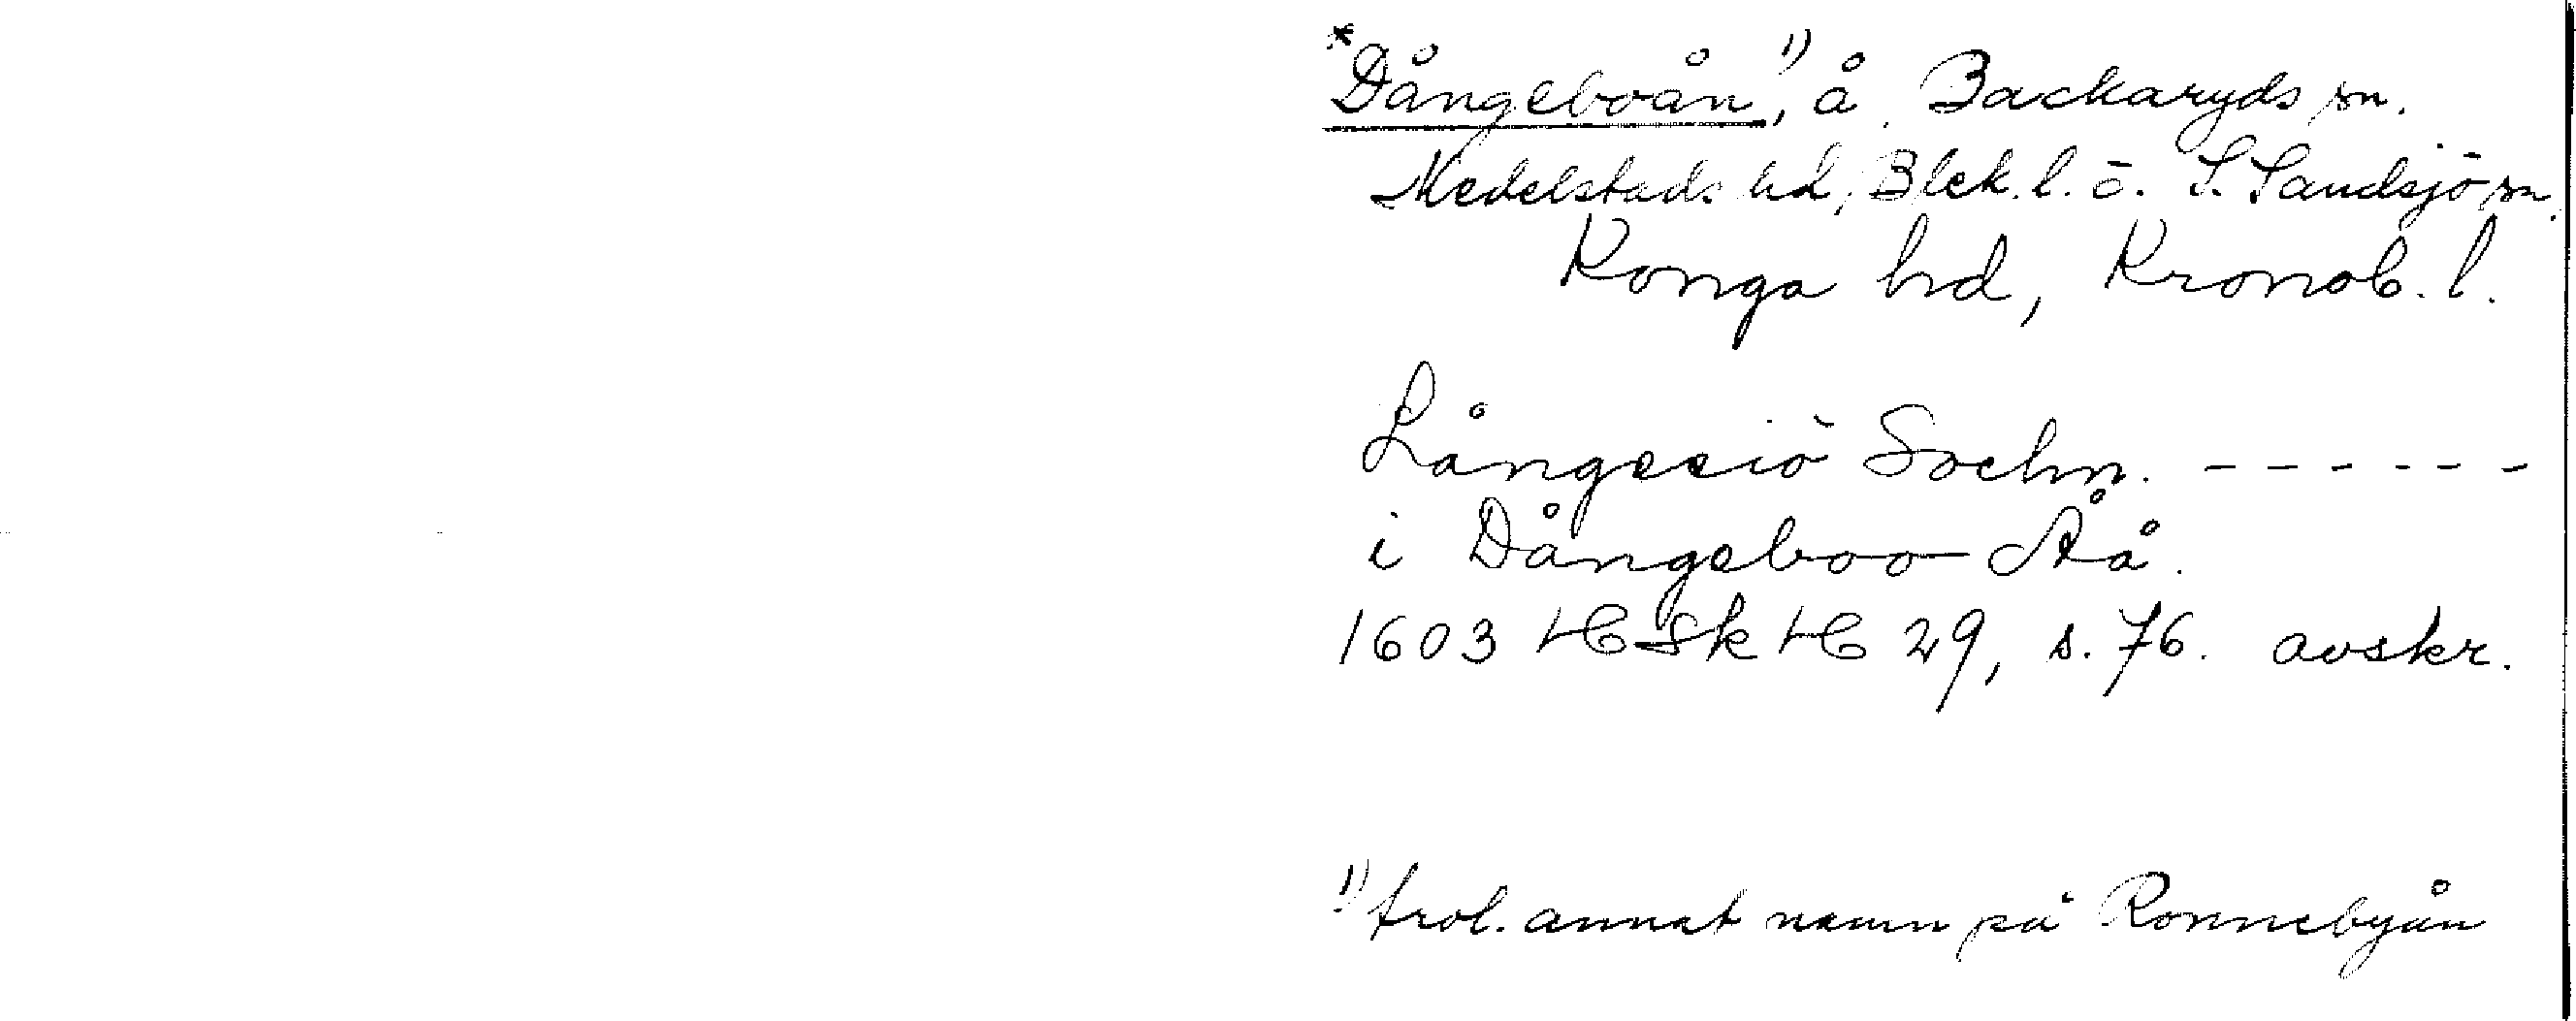 *Dångeboån,¹⁾ å, Backaryds sn.
Medelstads hd, Blek. l. o. S. Sandsjö sn,
Konga hd, Kronob. l.
Långesiö Sochn. - - - - - -
i Dångeboo Åå.
1603 HSkH 29, s. 76. avskr.
¹⁾ trol. annat namn på Ronnebyån